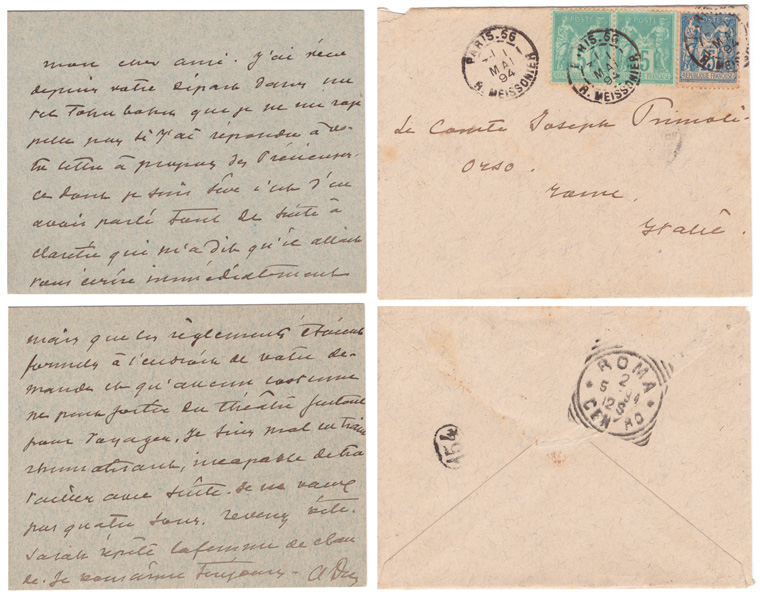 mon cher ami. J'ai vécu
depuis votre départ dans un
tel tohu bohu que je ne me rap
pelle pas si j'ai répondu à vo-
tre lettre à propos des Précieuses.
ce dont je suis sûr c'est d'en
avoir parlé tout de suite à
claretie qui m'a dit qu'il allait
vous écrire immédiatement
mais que les règlements étaient
formels à l'endroit de votre de-
mande et qu'aucun costume
ne peut sortir du théâtre surtout
pour voyager. Je suis mal en train
rhumatisant, incapable de tra
vailler avec suite. Je ne vaux
pas quatre sous. revenez vite.
Sarah répète la femme de clau
de. Je vous aime toujours - A D
PARIS_66
1
MAI
94
R. MEISSONIER
PARIS_66
MAI
94
R. MEISSONIER
POSTE
5
REPUBLIQUE FRANÇAISE
Le Comte Joseph Primoli-
Orso.
rome.
Italie.
ROMA
2
5
94
12 S
CENTRO
154